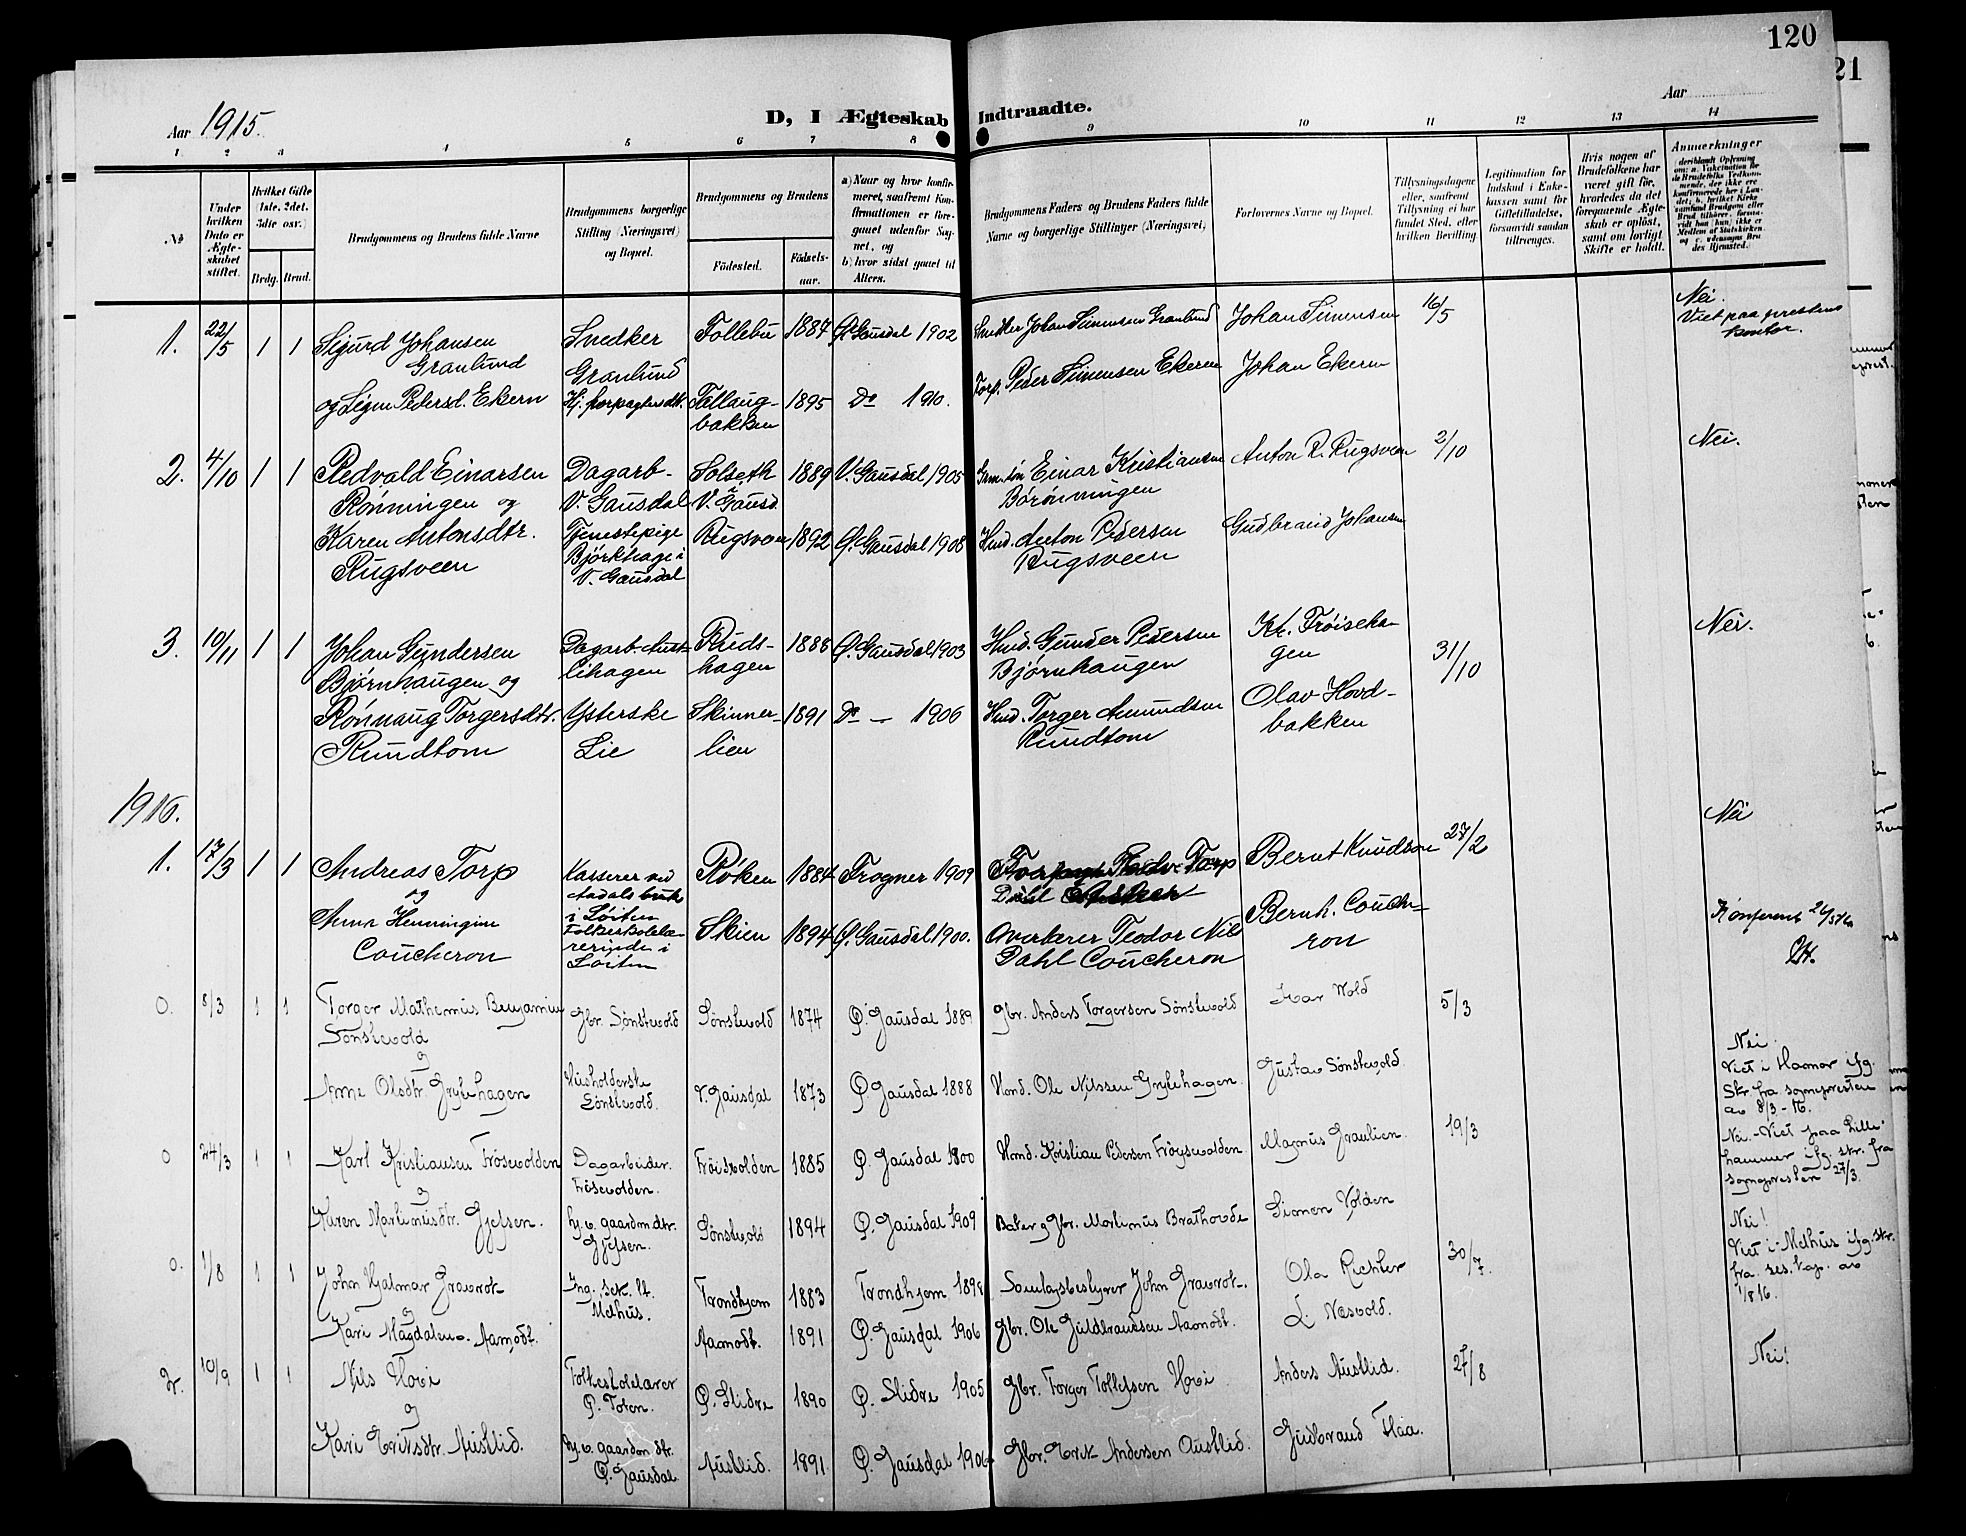 120
21
Aar 1915.
D, I Ægteskab Indtraadte.
Aar
1 2 3 4 5 6 7 8 9 10 11 12 13 14
No
Under hvilken Dato er Ægteskabet stiftet.
Hvilket Gifte (1ste, 2det, 3die osv.)
Brdg. Brud.
Brudgommens og Brudens fulde Navne
Brudgommens borgerlige Stilling (Næringsvei) og Bopæl.
Brudgommens og Brudens
Födested. Födselsaar.
a) Naar og hvor konfirmeret, saafremt Konfirmationen er foregaaet udenfor Sognet, og
b) hvor sidst gaaet til Alters.
Brudgommens Faders og Brudens Faders fulde Navne og borgerlige Stillinger (Næringsvei)
Forlovernes Navne og Bopæl.
Tillysningsdagene eller, saafremt Tillysning ei har fundet Sted, efter hvilken Bevilling
Legitimation for Indskud i Enkekassen samt for Giftetilladelse, forsaavidt saadan tiltrænges.
Hvis nogen af Brudefolkene har været gift för, hvorledes da det foregaaende Ægteskab er oplöst, samt om lovligt Skifte er holdt.
Anmerkninger
1. 22/5 1 1 Sigurd Johansen Snedker Follebu 1887 Ø. Gausdal 1902 Snedker Johan Simensen Granlund Johan Simensen 16/5 Nei.
Viet paa prestens kontor.
Granlund Granlund
og Signe Pedersd. Ekern Hj. forpagterdtr. Føllaugbakken 1895 Do 1910. Forp. Peder Simensen Ekern Johan Ekern
2. 4/10 1 1 Redvald Einarsen Dagarb. Solseth 1889 V. Gausdal 1905 Einar Kristiansen Anton P. Rugsveen 2/10 Nei.
Rønningen og V. Gausdal V. Gausd. Børønningen
Karen Antonsdtr. Tjenestepige Rugsveen 1892 Ø. Gausdal 1908 Husd. Anton Pedersen Gudbrand Johansen
Rugsveen Bjørkhage i V. Gausdal Rugsveen
3. 10/11 1 1 Johan Gundersen Dagarb. Austlihagen Rudshagen 1888 Ø. Gausdal 1903 Husd. Gunder Pedersen Kr. Frøisehagen 31/10 Nei.
Bjørnhaugen og Bjørnhaugen
Rønnaug Torgersdtr. Ysterske Skinnerlien 1891 Do — 1906 Husd. Torger Amundsen Olav Hovdbakken
Rundtom Lie Rundtom
1916.
1. 17/3 1 1 Andreas Torp Kasserer ved Aadals bruk i Løiten Røken 1884 Frogner 1909 Bernt Knudson 27/2 Nei
og
Anna Henningine Folkeskolelærerinde i Løiten Skien 1894 Ø. Gausdal 1900. Overlærer Teodor Nils Bernh. Coucheron
Coucheron Dahl Coucheron
0. 8/3 1 1 Torger Mathemus Benjamin Gbr. Sønstevold Sønstevold 1874 Ø. Gausdal 1889 Gbr. Anders Torgersen Sønstevold Ivar Wold 5/3
Sønstevold
og
Anne Olsdtr. Grytehagen Husholderske Sønstevold. V. Gausdal 1873 Ø. Gausdal 1888 Husd. Ole Nilssen Grytehagen Gustav Sønstevold
Nei.
Viet i Hamar ifg. skr. fra sognepresten av 8/3-16.
0 24/3 1 1 Karl Kristiansen Frøsevolden Dagarbeider. Frøsevolden. Frøisvolden 1885 Ø. Gausdal 1800 Husd. Kristian Pedersen Frøysevolden Magnus Graulien. 19/3 Nei. - Viet paa Lillehammer ifg. skr. fra sognepresten 27/3.
og
Karen Martinusdtr. Gjefsen. hj.v. gaardm.dtr. Gjefsen. Sønstevold 1894 Ø. Gausdal 1909 Baker og Gbr. Martinus Brathovde Simen Volden
0. 1/8 1 1 John Hjalmar Gravrok Ing. sek. lt. Melhus. Trondhjem 1883 Trondhjem 1898 Samlagsbestyrer John Gravrok. Ola Richter 30/7. Nei!
Viet i Melhus ifg. skr. fra res. kap. av 1/8 16.
og
Kari Magdalena Aamodt. Aamodt. 1891 Ø. Gausdal 1906 Gbr. Ole Guldbrandsen Aamodt. L. Næsvold.
2. 10/9 1 1 Nils Hovi Folkeskolelærer Ø. Toten. Ø. Slidre 1890 Ø. Slidre 1905 Gbr. Torger Tollefsen Hovi Anders Austlid. 27/8 Nei!
og
Kari Eriksdtr. Austlid. hj.v. gaardm.dtr. Ø. Gausdal Austlid. 1891 Ø. Gausdal 1906 Gbr. Erik Andersen Austlid. Gudbrand Flaa.